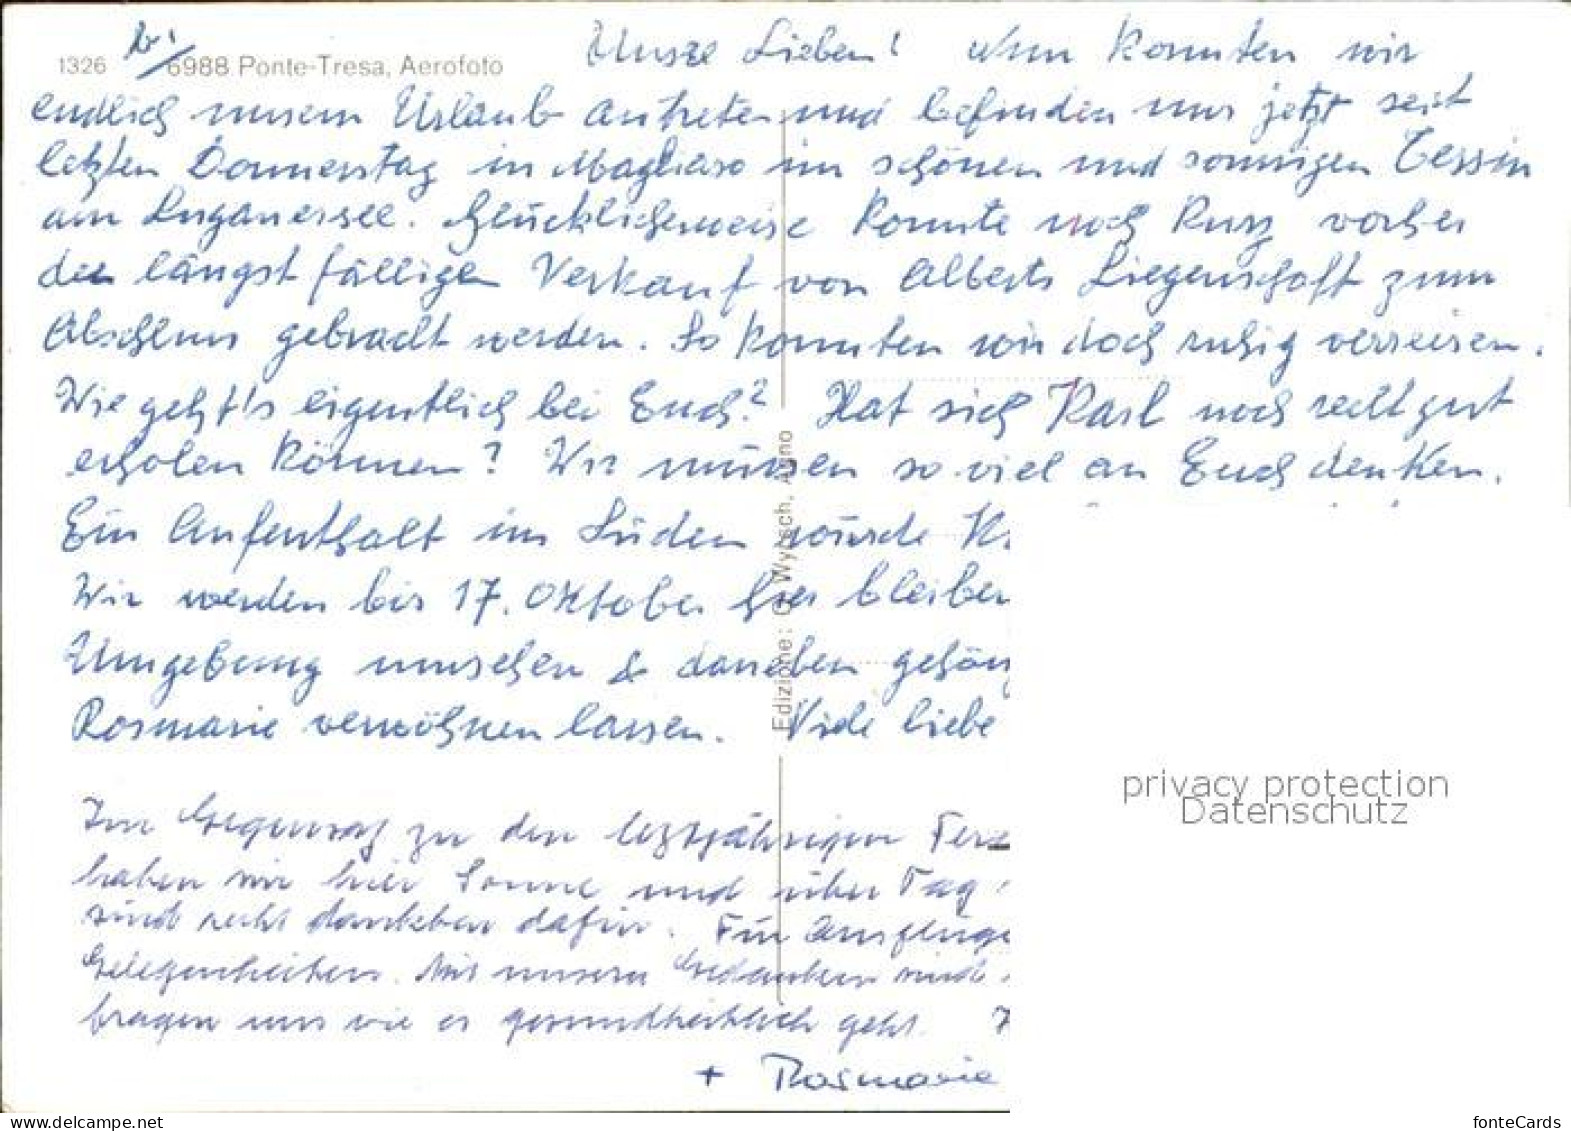 1326 bei 6988 Ponte-Tresa, Aerofoto
Unsere Lieben! Nun konnten wir
endlich unsern Urlaub antreten und befinden uns jetzt seit
letzten Donnerstag in Magliaso im schönen und sonnigen Tessin
am Luganersee. Glücklicherweise konnte noch kurz vorher
der längst fällige Verkauf von Alberts Liegenschaft zum
Abschluss gebracht werden. So konnten wir doch ruhig verreisen.
Wie geht's eigentlich bei Euch? Hat sich Karl noch recht gut
erholen können? Wir müssen so viel an Euch denken.
Ein Aufenthalt im Süden würde
Wir werden bis 17. Oktober hier bleiben
Umgebung umsehen & daneben gehörig
Rosmarie verwöhnen lassen. Viele liebe
Im Gegensatz zu den letztjährigen Ferien
haben wir hier Sonne und über Tag
sind recht dankbar dafür. Für Ausflüge
Gelegenheiten. Mit unsern Gedanken sind
fragen uns wie es gesundheitlich geht.
+ Rosmarie
Edizione: G. Wytsch, Agno
privacy protection
Datenschutz
www.delcampe.net
fonteCards